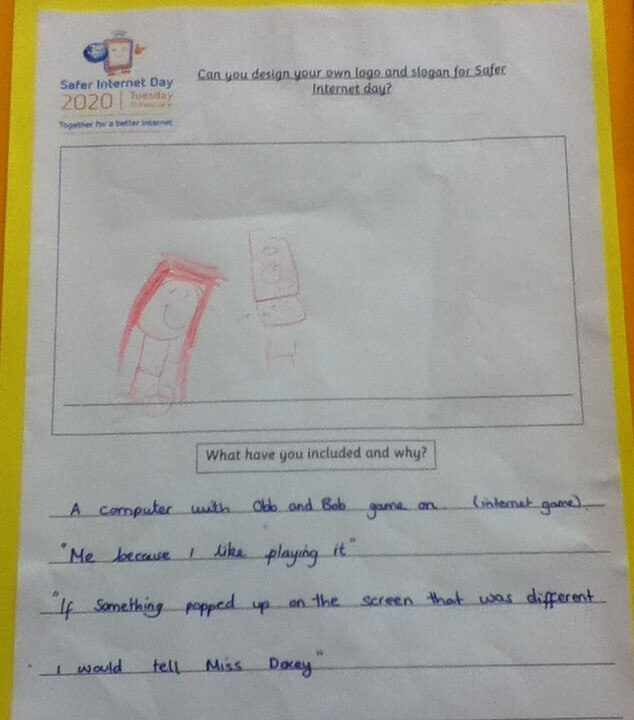 Safer Internet Day
2020 | Tuesday
Together for a better internet
Can you design your own logo and slogan for Safer
Internet day?
What have you included and why?
A computer with Obb and Bob game on. (internet game)
"Me because I like playing it"
"If something popped up on the screen that was different
I would tell Miss Doxey"